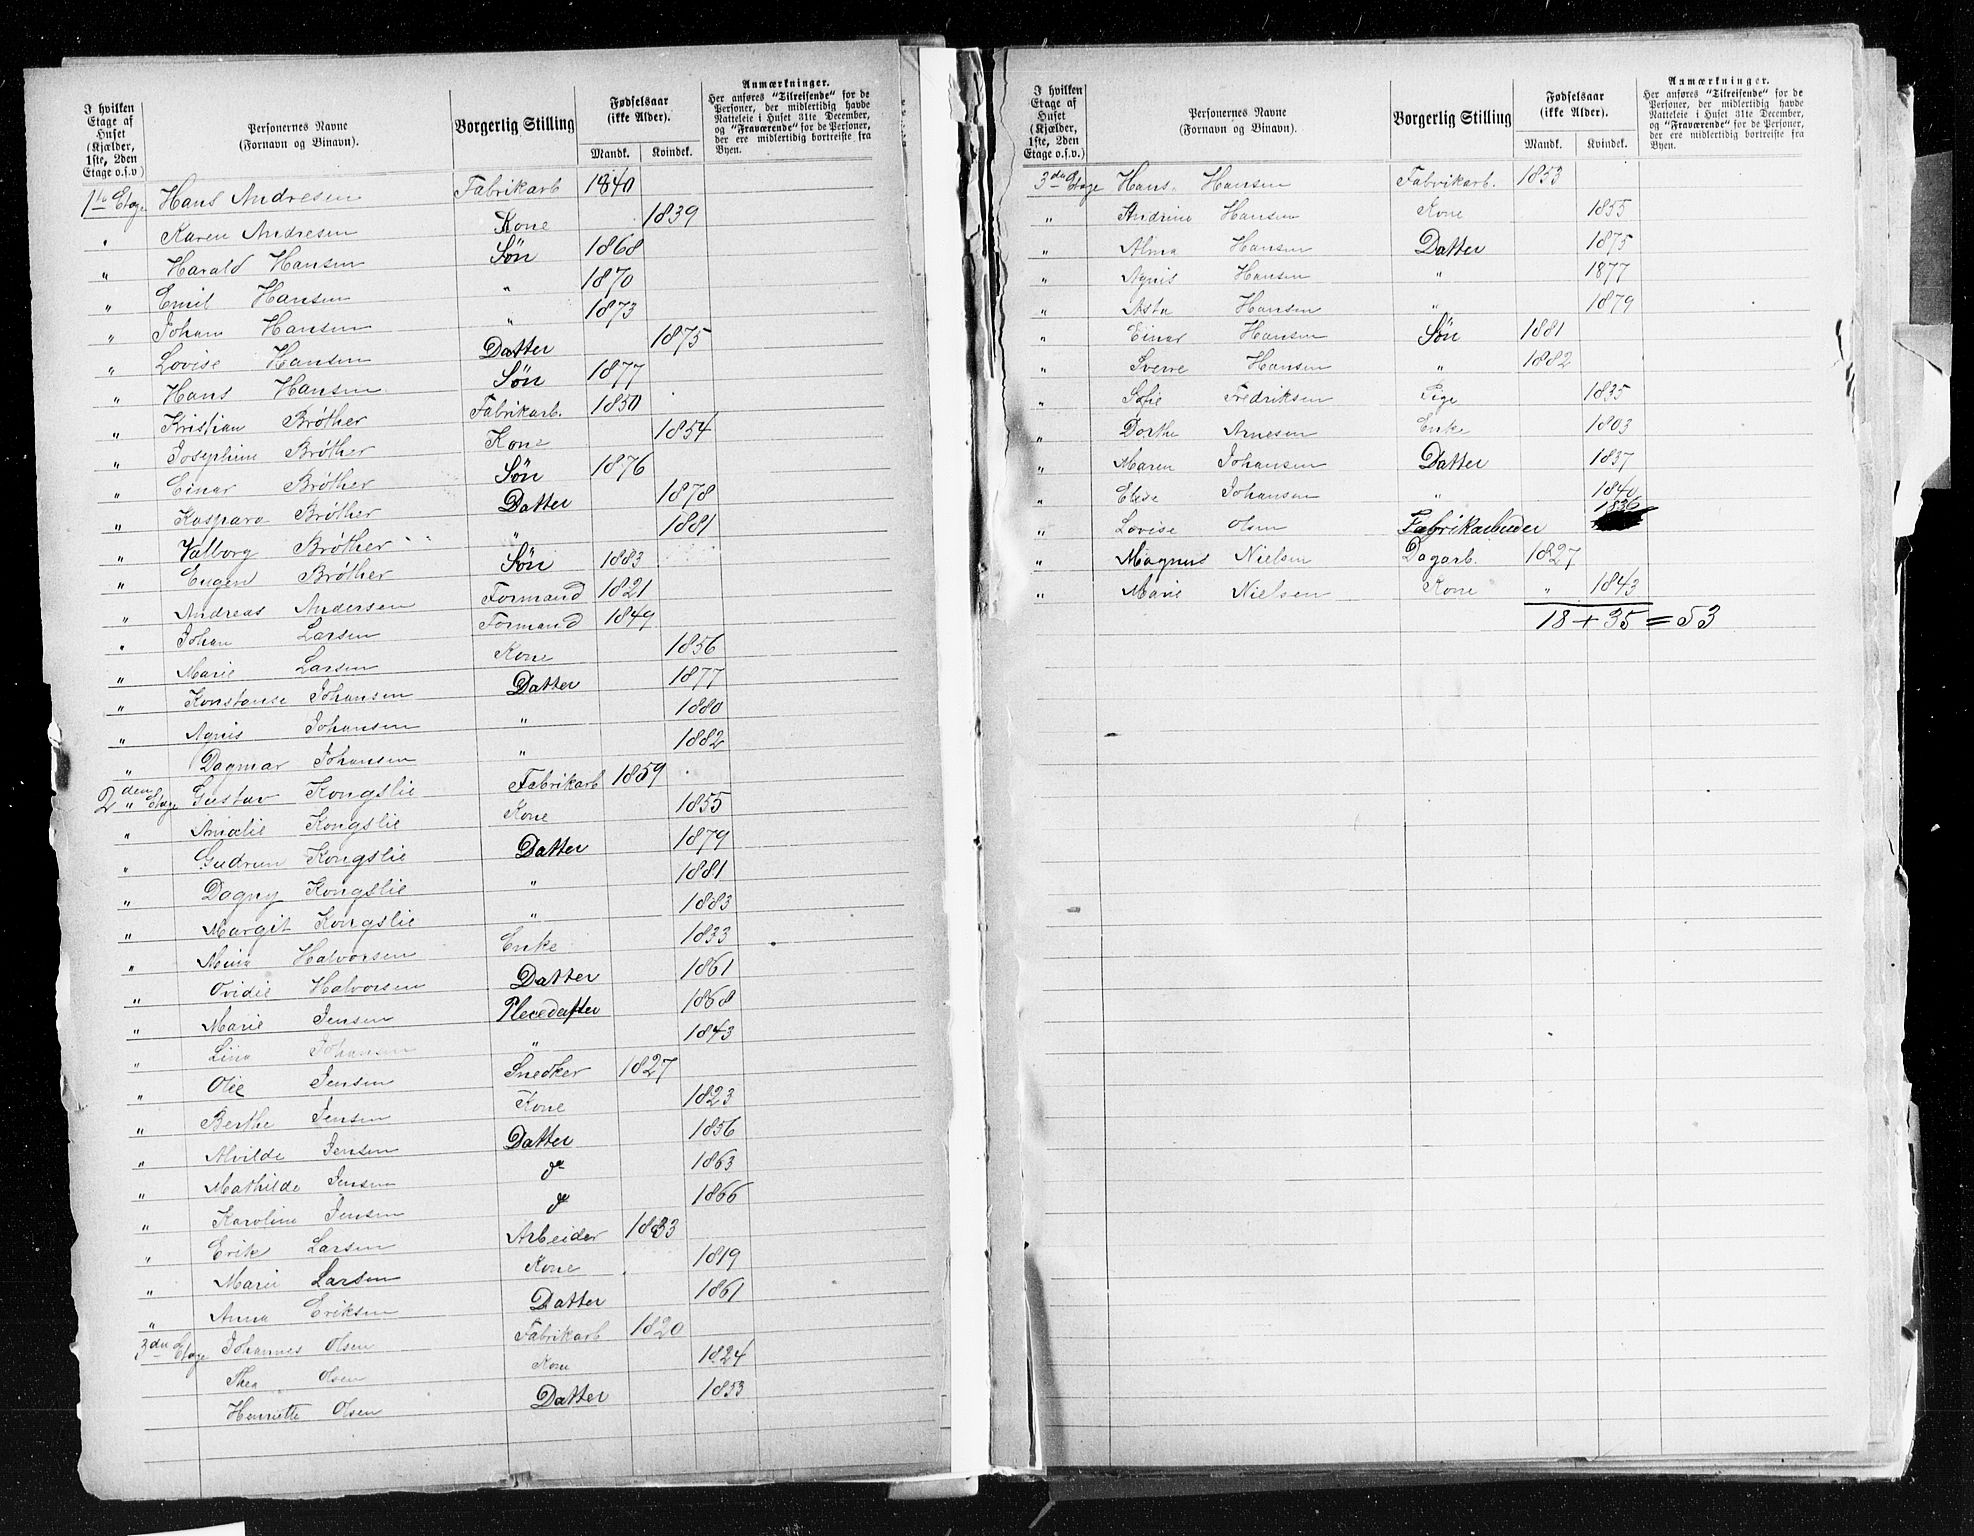 I hvilken Etage af Huset (Kjælder, 1ste, 2den Etage o.s.v)
Personernes Navne (Fornavn og Binavn).
Borgerlig Stilling
Fødselsaar (ikke Alder).
Mandk. Kvindek.
Anmærkninger.
Her anføres "Tilreisende" for de Personer, der midlertidig havde Natteleie i Huset 31te December, og "Fraværende" for de Personer, der ere midlertidig bortreiste fra Byen.
1ste Etage Hans Andresen Fabrikarb 1840
" Karen Andresen Kone 1839
" Harald Hansen Søn 1868
" Emil Hansen " 1870
" Johan Hansen " 1873
" Lovise Hansen Datter 1875
" Hans Hansen Søn 1877
" Kristian Brøther Fabrikarb. 1850
" Josephine Brøther Kone 1854
" Einar Brøther Søn 1876
" Kaspara Brøther Datter 1878
" Valborg Brøther " 1881
" Eugen Brøther Søn 1883
" Andreas Andersen Formand 1821
" Johan Larsen Formand 1849
" Marie Larsen Kone 1856
" Konstanse Johansen Datter 1877
" Agnis Johansen " 1880
" Dagmar Johansen " 1882
2den Etage Gustav Kongslie Fabrikarb 1859
" Amalie Kongslie Kone 1855
" Gudrun Kongslie Datter 1879
" Dagny Kongslie " 1881
" Margit Kongslie " 1883
" Mina Halvorsen Enke 1833
" Ovidie Halvorsen Datter 1861
" Marie Jensen Pleiedatter 1868
" Lina Johansen " 1843
" Ole Jensen Snedker 1827
" Berthe Jensen Kone 1823
" Alvilde Jensen Datter 1856
" Mathilde Jensen do 1863
" Karoline Jensen do 1866
" Erik Larsen Arbeider 1833
" Marie Larsen Kone 1819
" Anna Eriksen Datter 1861
3die Etage Johannes Olsen Fabrikarb 1820
Thea Olsen Kone 1824
Henriette Olsen Datter 1853
I hvilken Etage af Huset (Kjælder, 1ste, 2den Etage o.s.v.)
Personernes Navne (Fornavn og Binavn).
Borgerlig Stilling
Fødselsaar (ikke Alder).
Mandk. Kvindek.
Anmærkninger.
Her anføres "Tilreisende" for de Personer, der midlertidig havde Natteleie i Huset 31te December, og "Fraværende" for de Personer, der ere midlertidig bortreiste fra Byen.
3die Etage Hans Hansen Fabrikarb. 1853
" Andrine Hansen Kone 1855
" Alma Hansen Datter 1875
" Agnis Hansen " 1877
" Asta Hansen " 1879
" Einar Hansen Søn 1881
" Sverre Hansen " 1882
" Sofie Fredriksen Pige 1835
" Dorthe Arnesen Enke 1803
" Maren Johansen Datter 1837
" Elise Johansen " 1840
" Lovise Olsen Fabrikarbeider 1836
" Magnus Nielsen Dagarb. 1827
" Marie Nielsen Kone " 1843
18 + 35 = 53